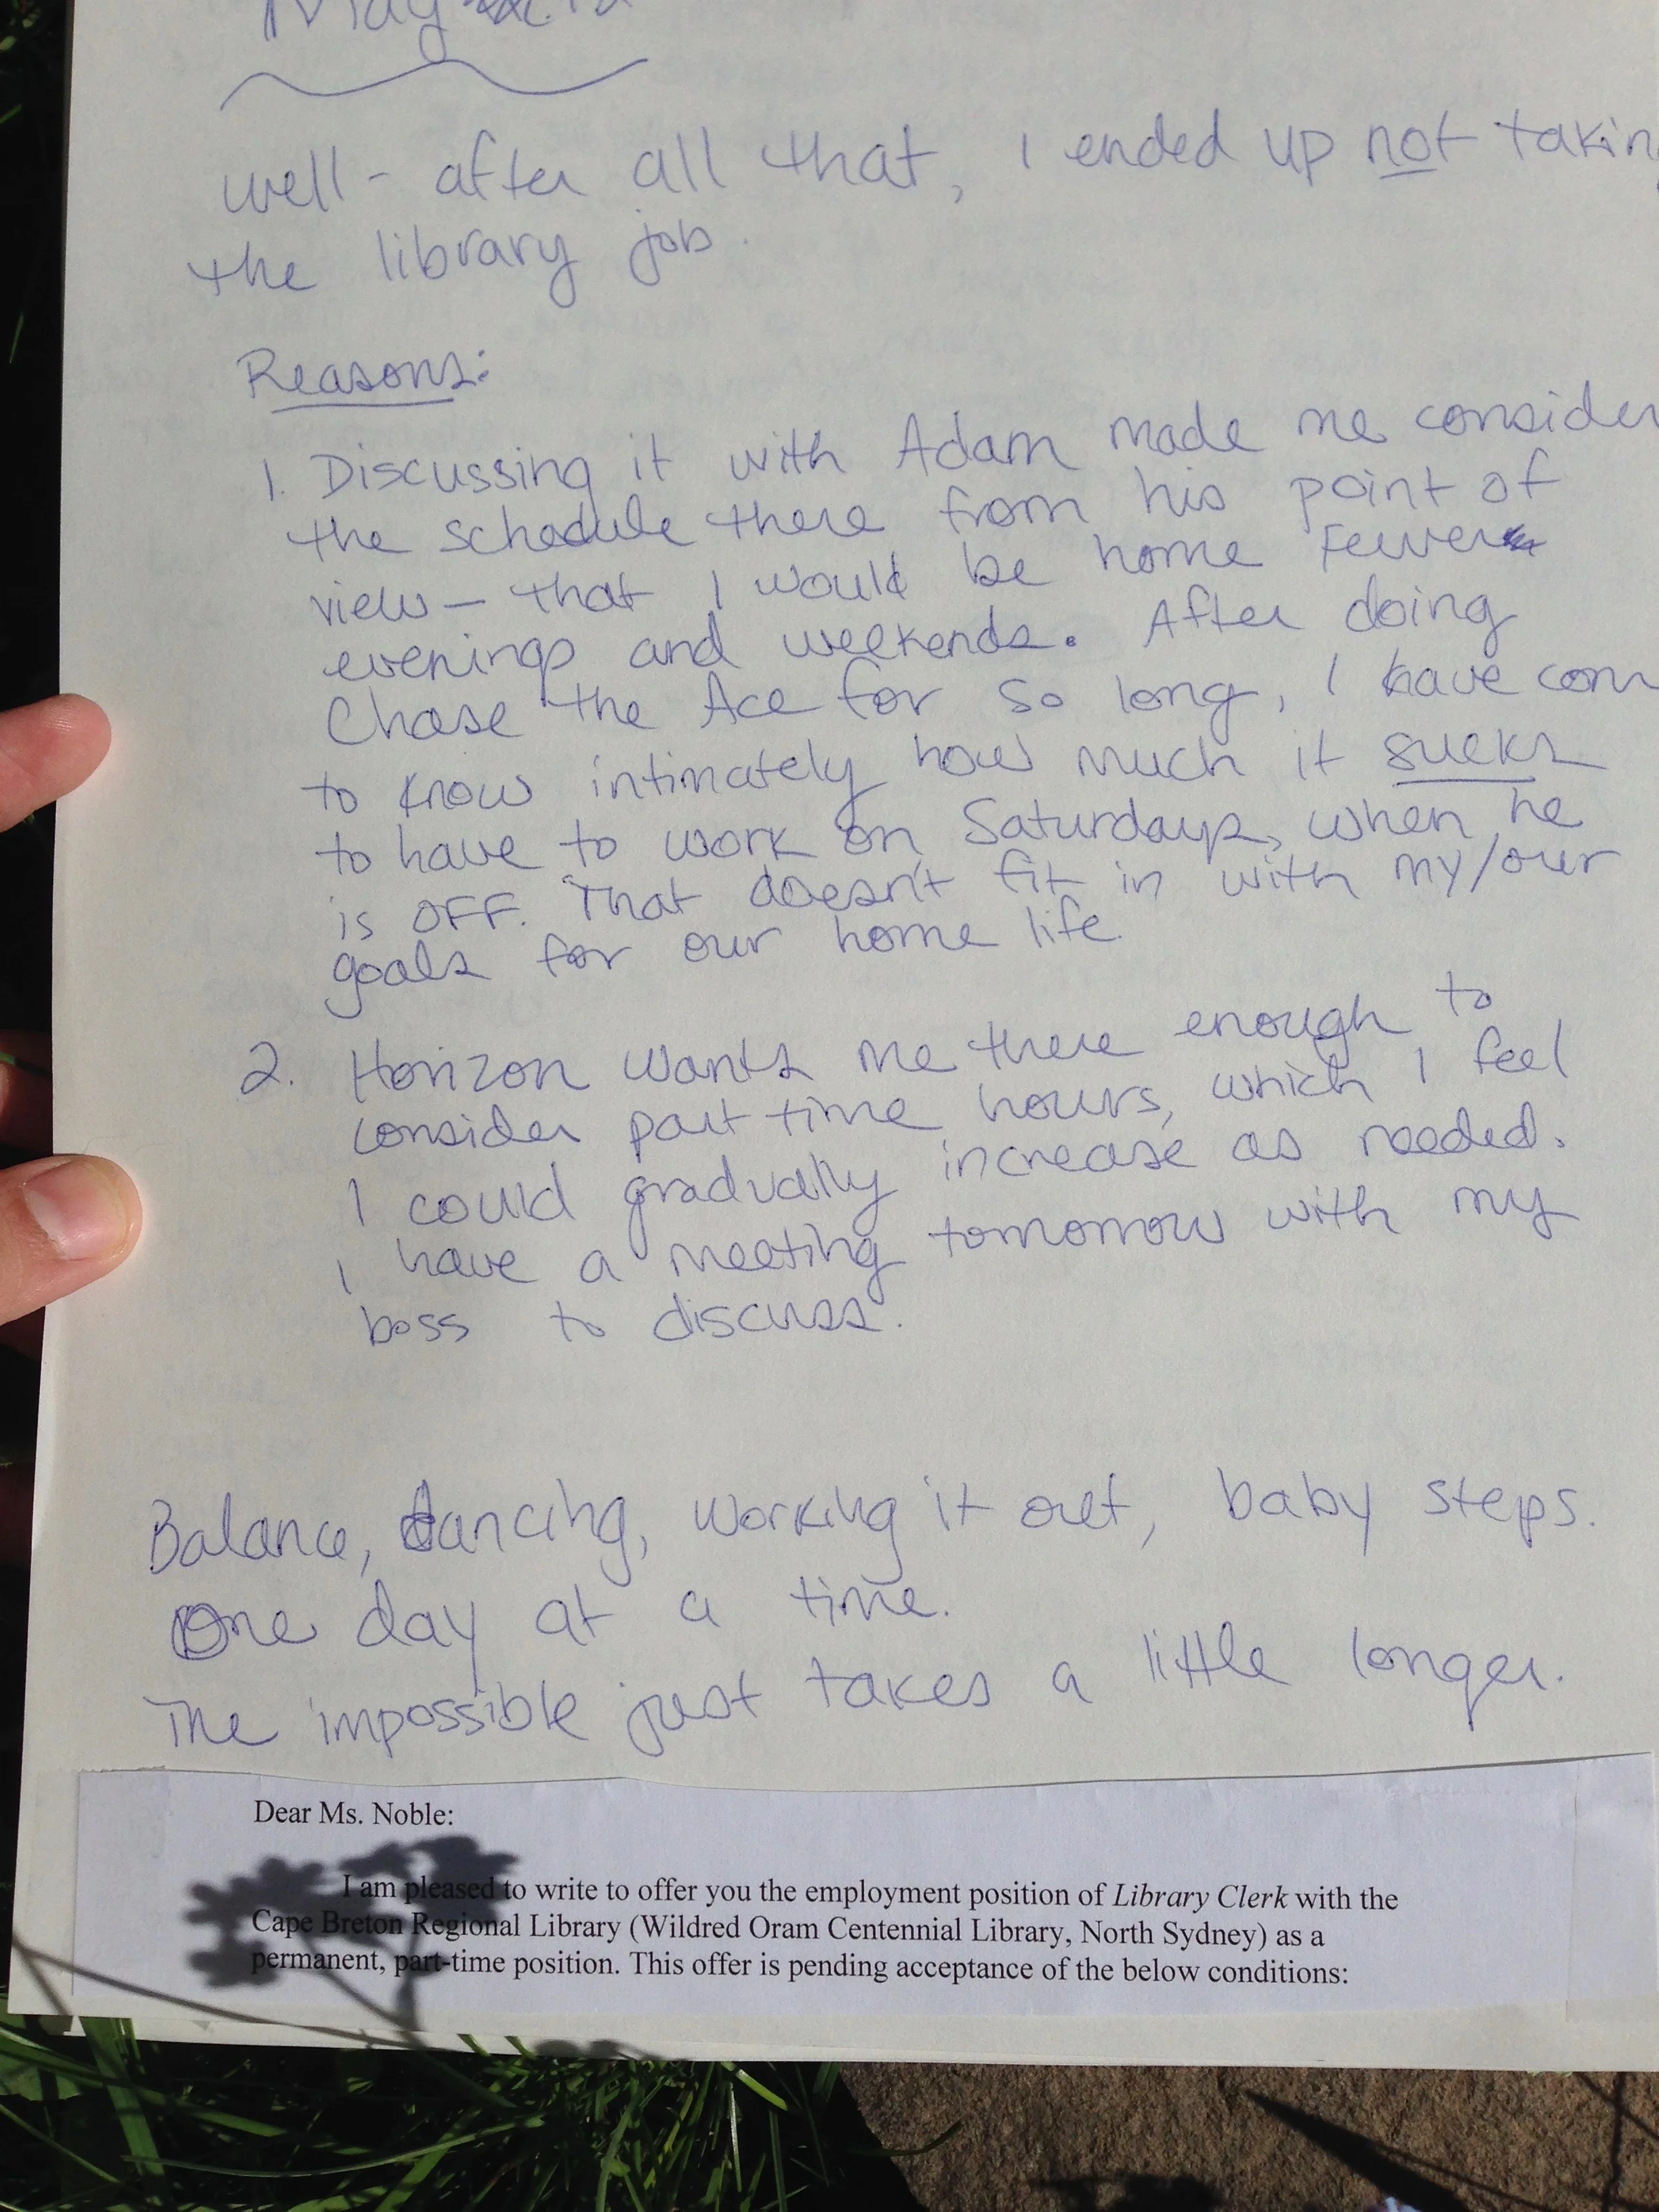 May
well - after all that, I ended up not takin
the library job.
Reasons:
1. Discussing it with Adam made me consider
the schedule there from his point of
view - that I would be home fewer
evenings and weekends. After doing
Chase the Ace for so long, I have com
to know intimately how much it sucks
to have to work on Saturdays, when he
is OFF. That doesn't fit in with my/our
goals for our home life.
2. Horizon wants me there enough to
consider part time hours, which I feel
I could gradually increase as needed.
I have a meeting tomorrow with my
boss to discuss.
Balance, dancing, working it out, baby steps.
One day at a time.
The impossible just takes a little longer.
Dear Ms. Noble:
I am pleased to write to offer you the employment position of Library Clerk with the
Cape Breton Regional Library (Wildred Oram Centennial Library, North Sydney) as a
permanent, part-time position. This offer is pending acceptance of the below conditions: